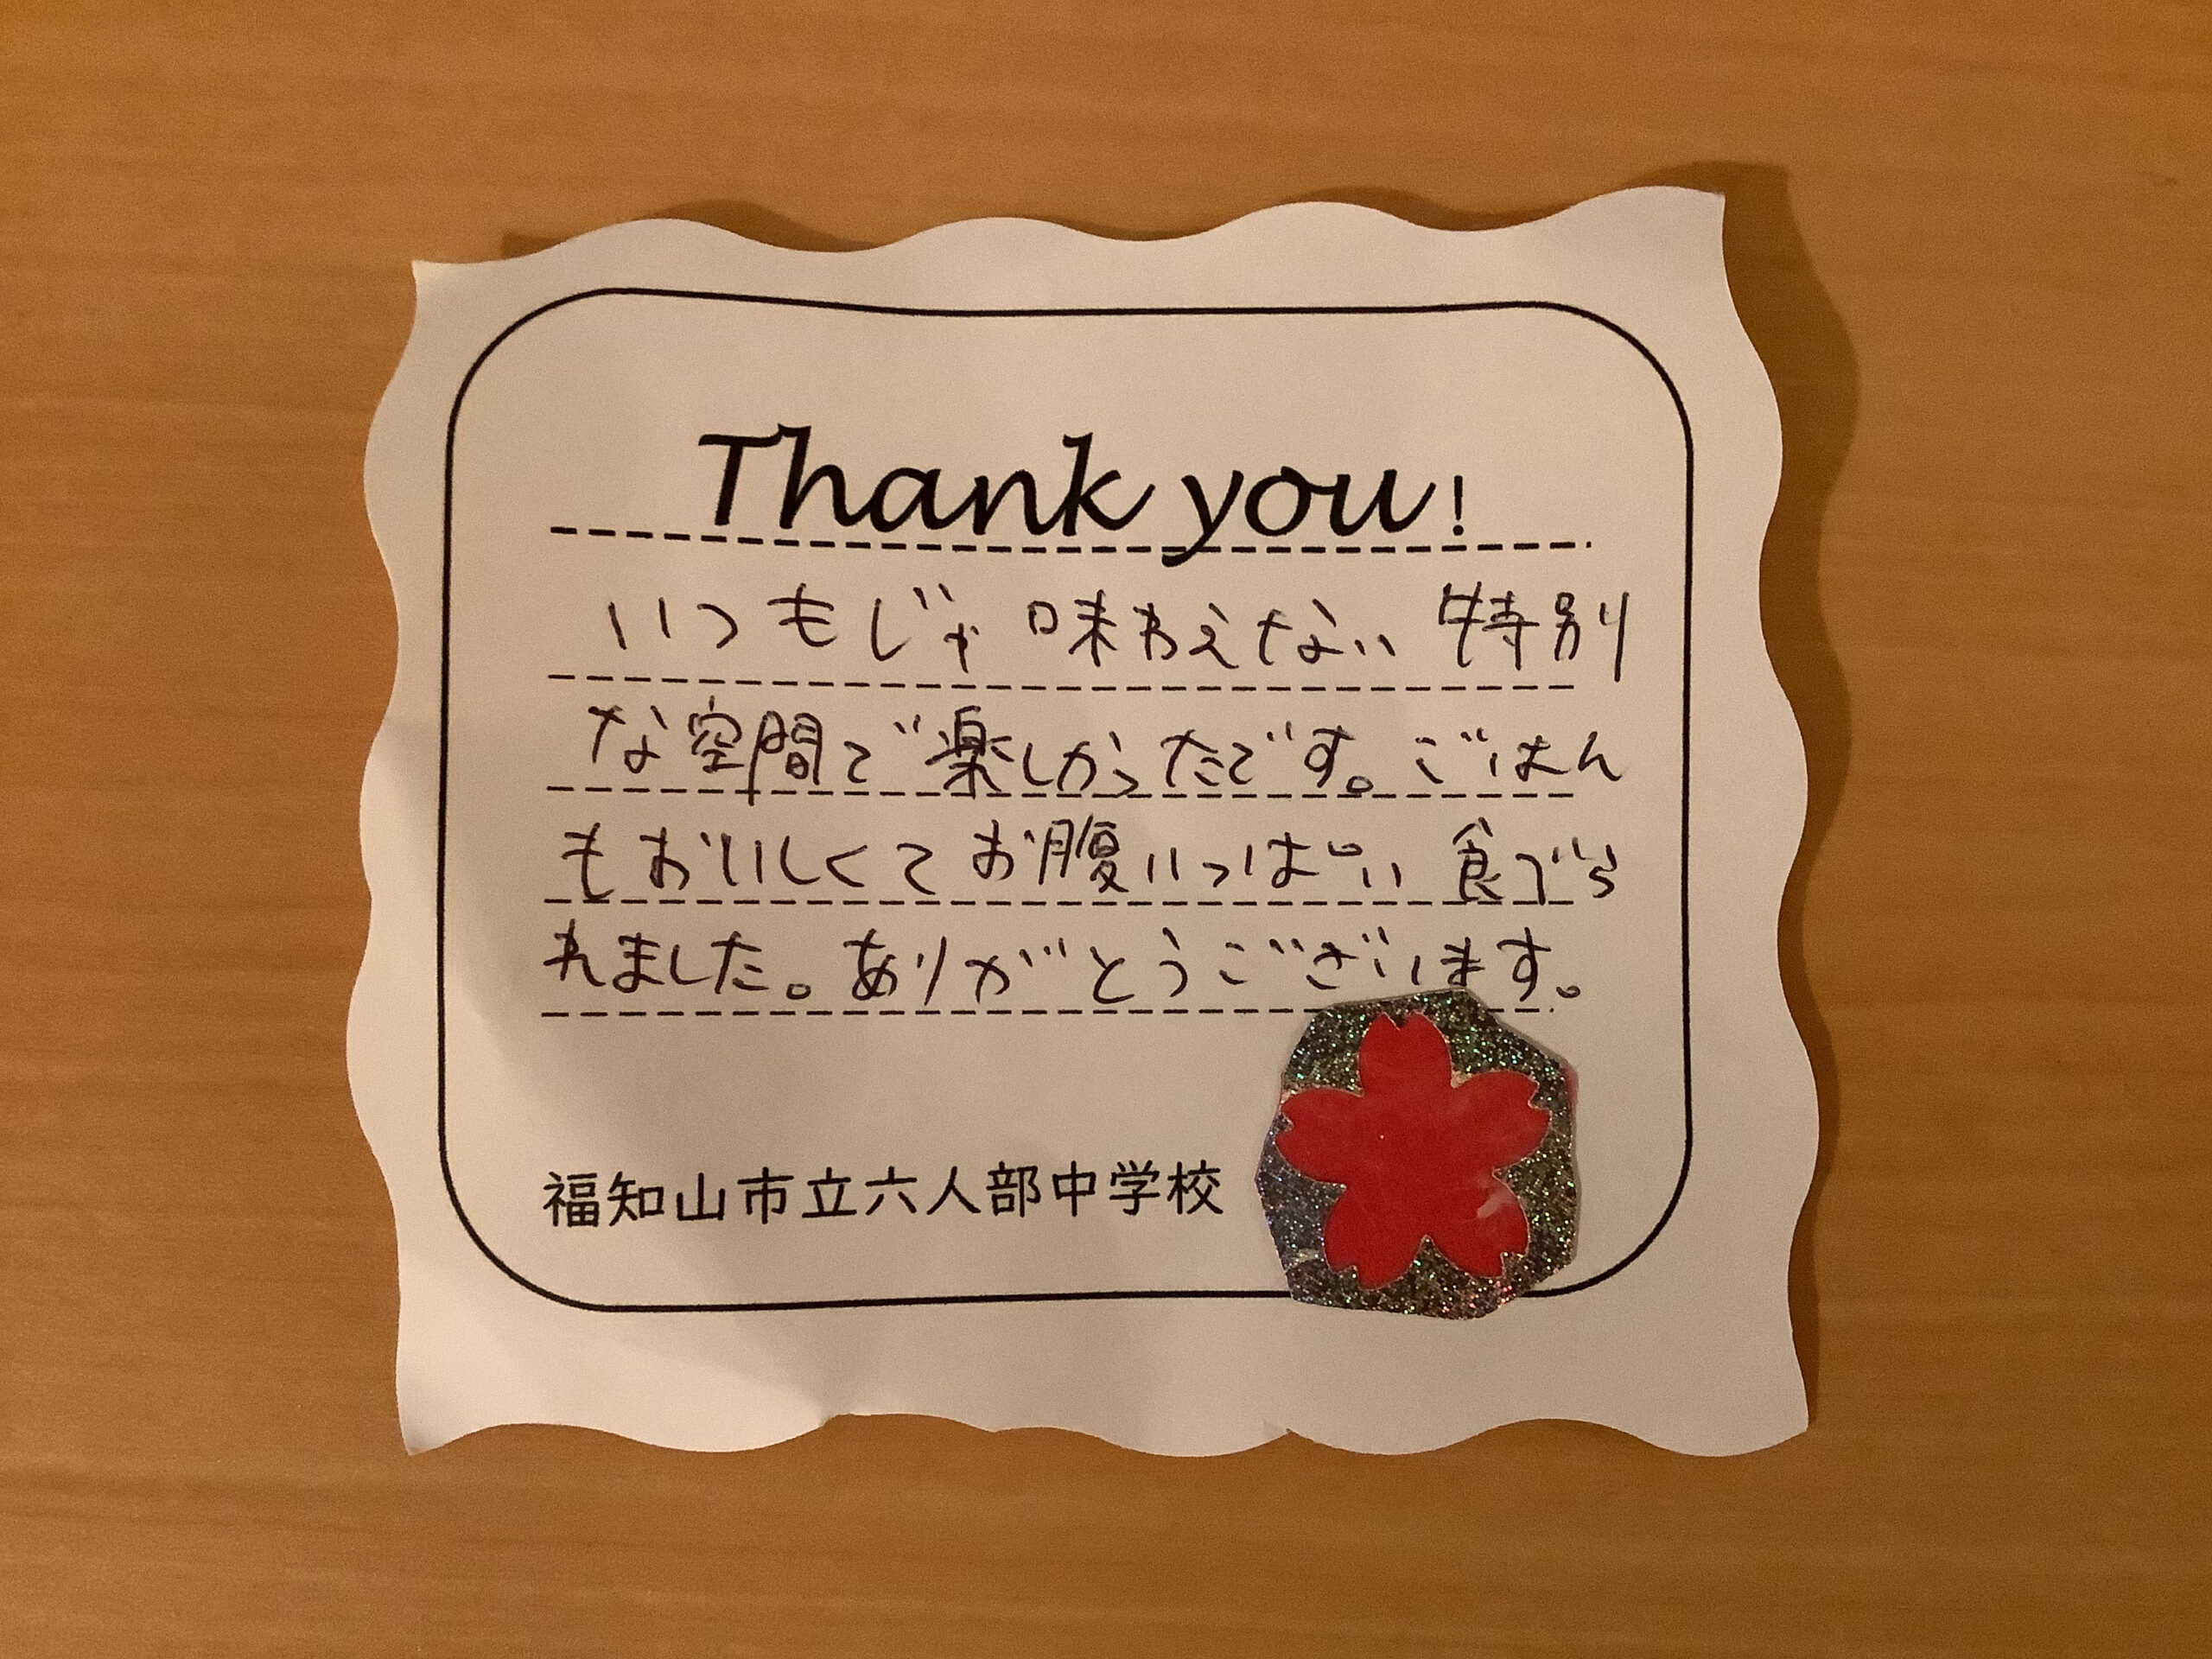 Thank you!
いつもじゃ味わえない特別
な空間で楽しかったです。ごはん
もおいしくてお腹いっぱい食べら
れました。ありがとうございます。
福知山市立六人部中学校